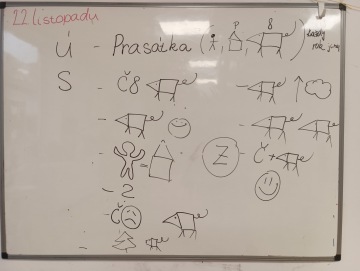 22 listopadu
Ú - Prasátka ( , P , 8 )
S - Č8
-
-
-
- = Z - Č +
- 2
- Č
-